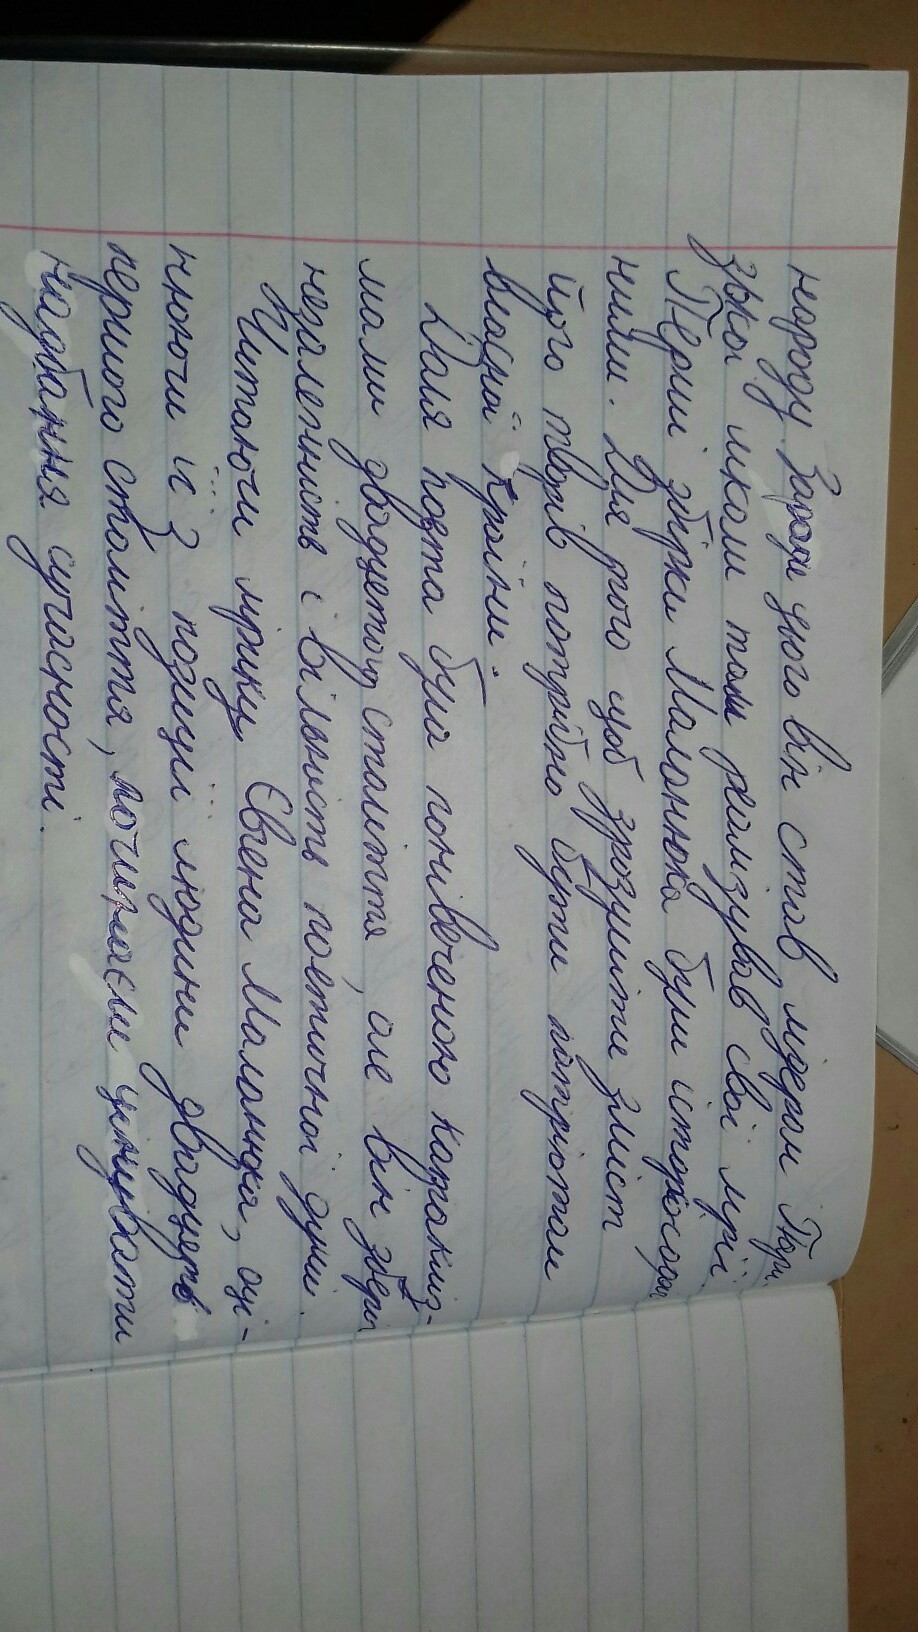 народу. Заради цього він став лідером Празь
зької школи там реалізував свої мрії.
Перші збірки Маланюка були історіософ
ними. Для того щоб зрозуміти зміст
його творів потрібно бути патріотом
власної країни.
Доля поета була понівеченою катакліз-
мами двадцятого століття, але він зберіг
незалежність і вільність поетичної душі.
Читаючи лірику Євгена Маланюка, оці-
нюючи її з позиції людини двадцять
першого століття, починаєм цінувати
надбання сучасності.